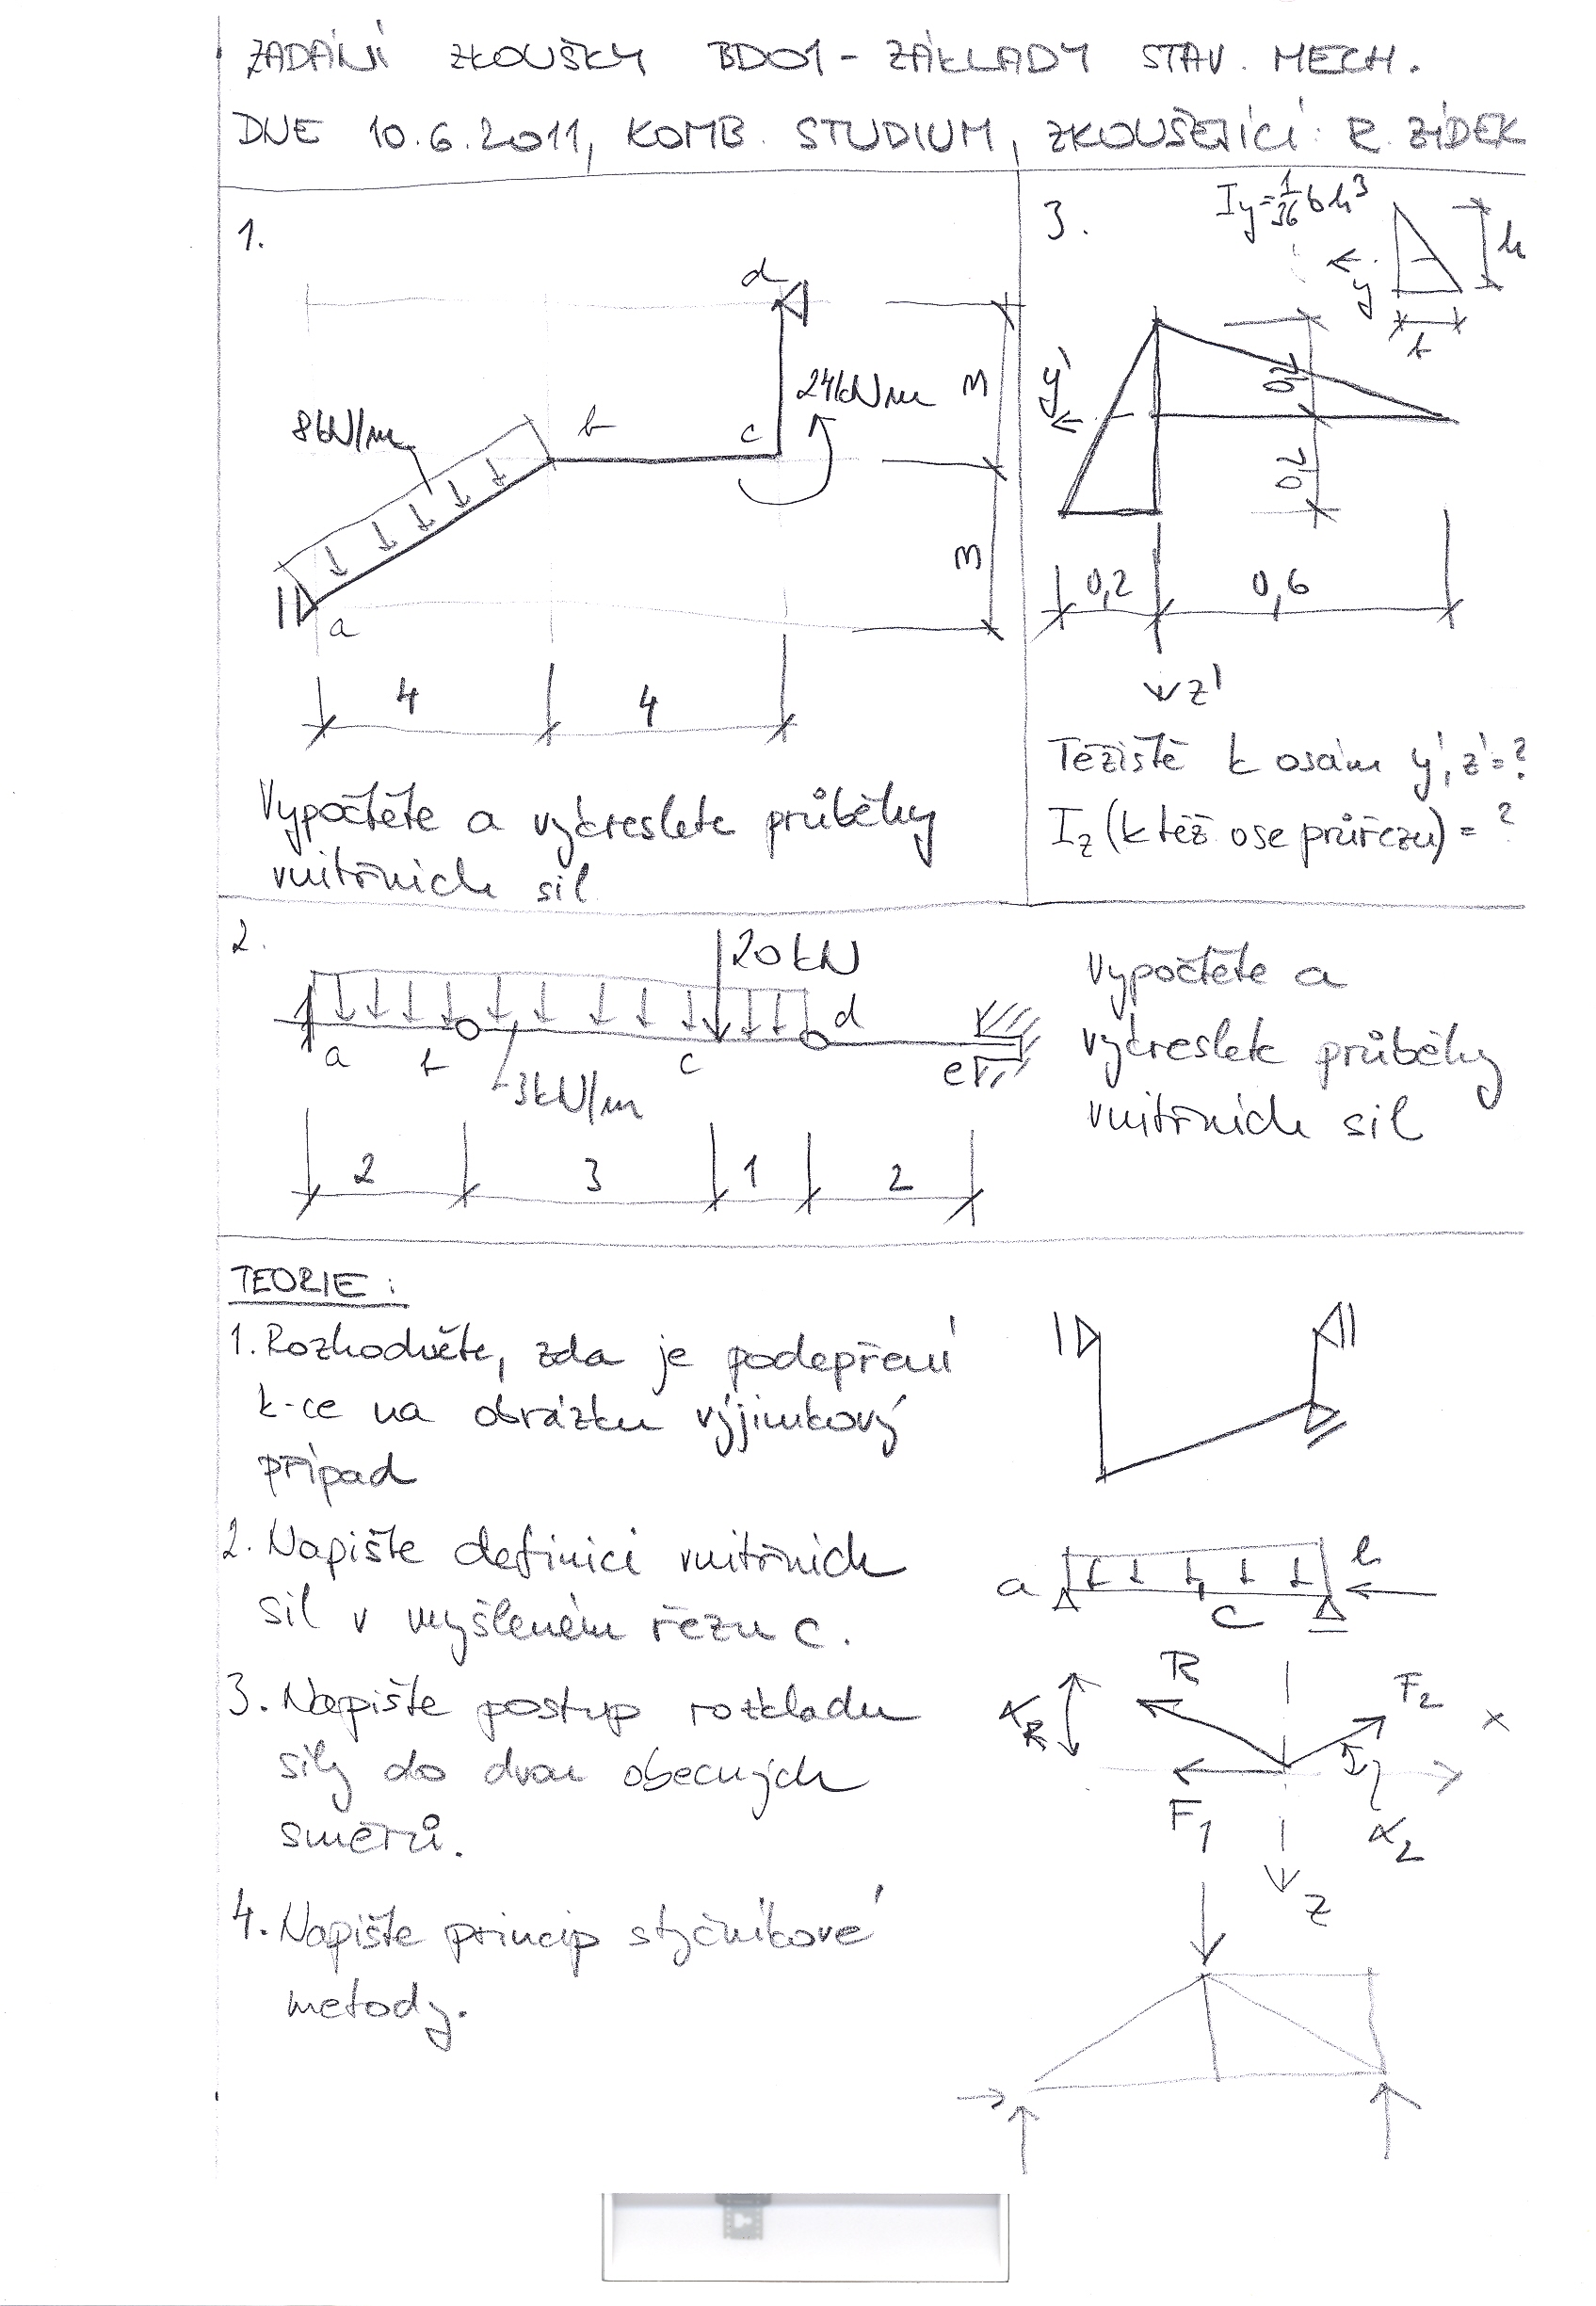 ZADÁNÍ ZKOUŠKY BD01 - ZÁKLADY STAV. MECH.
DNE 10.6.2011, KOMB. STUDIUM, ZKOUŠEJÍCÍ: R. ZÍDEK
1.
d
24kNm
8kN/m
b
c
a
3
3
4
4
Vypočtěte a vykreslete průběhy
vnitřních sil
3.
Iy=1/36 bh³
h
y
b
y'
0,2
0,2
0,2
0,6
z'
Těžiště k osám y', z'=?
Iz (k těž. ose průřezu) = ?
2.
20kN
a
b
c
d
e
3kN/m
2
3
1
2
Vypočtěte a
vykreslete průběhy
vnitřních sil
TEORIE:
1. Rozhodněte, zda je podepření
k-ce na obrázku výjimkový
případ
2. Napište definici vnitřních
sil v myšleném řezu c.
a
c
b
3. Napište postup rozkladu
síly do dvou obecných
směrů.
R
αR
F2
x
F1
α2
z
4. Napište princip styčníkové
metody.